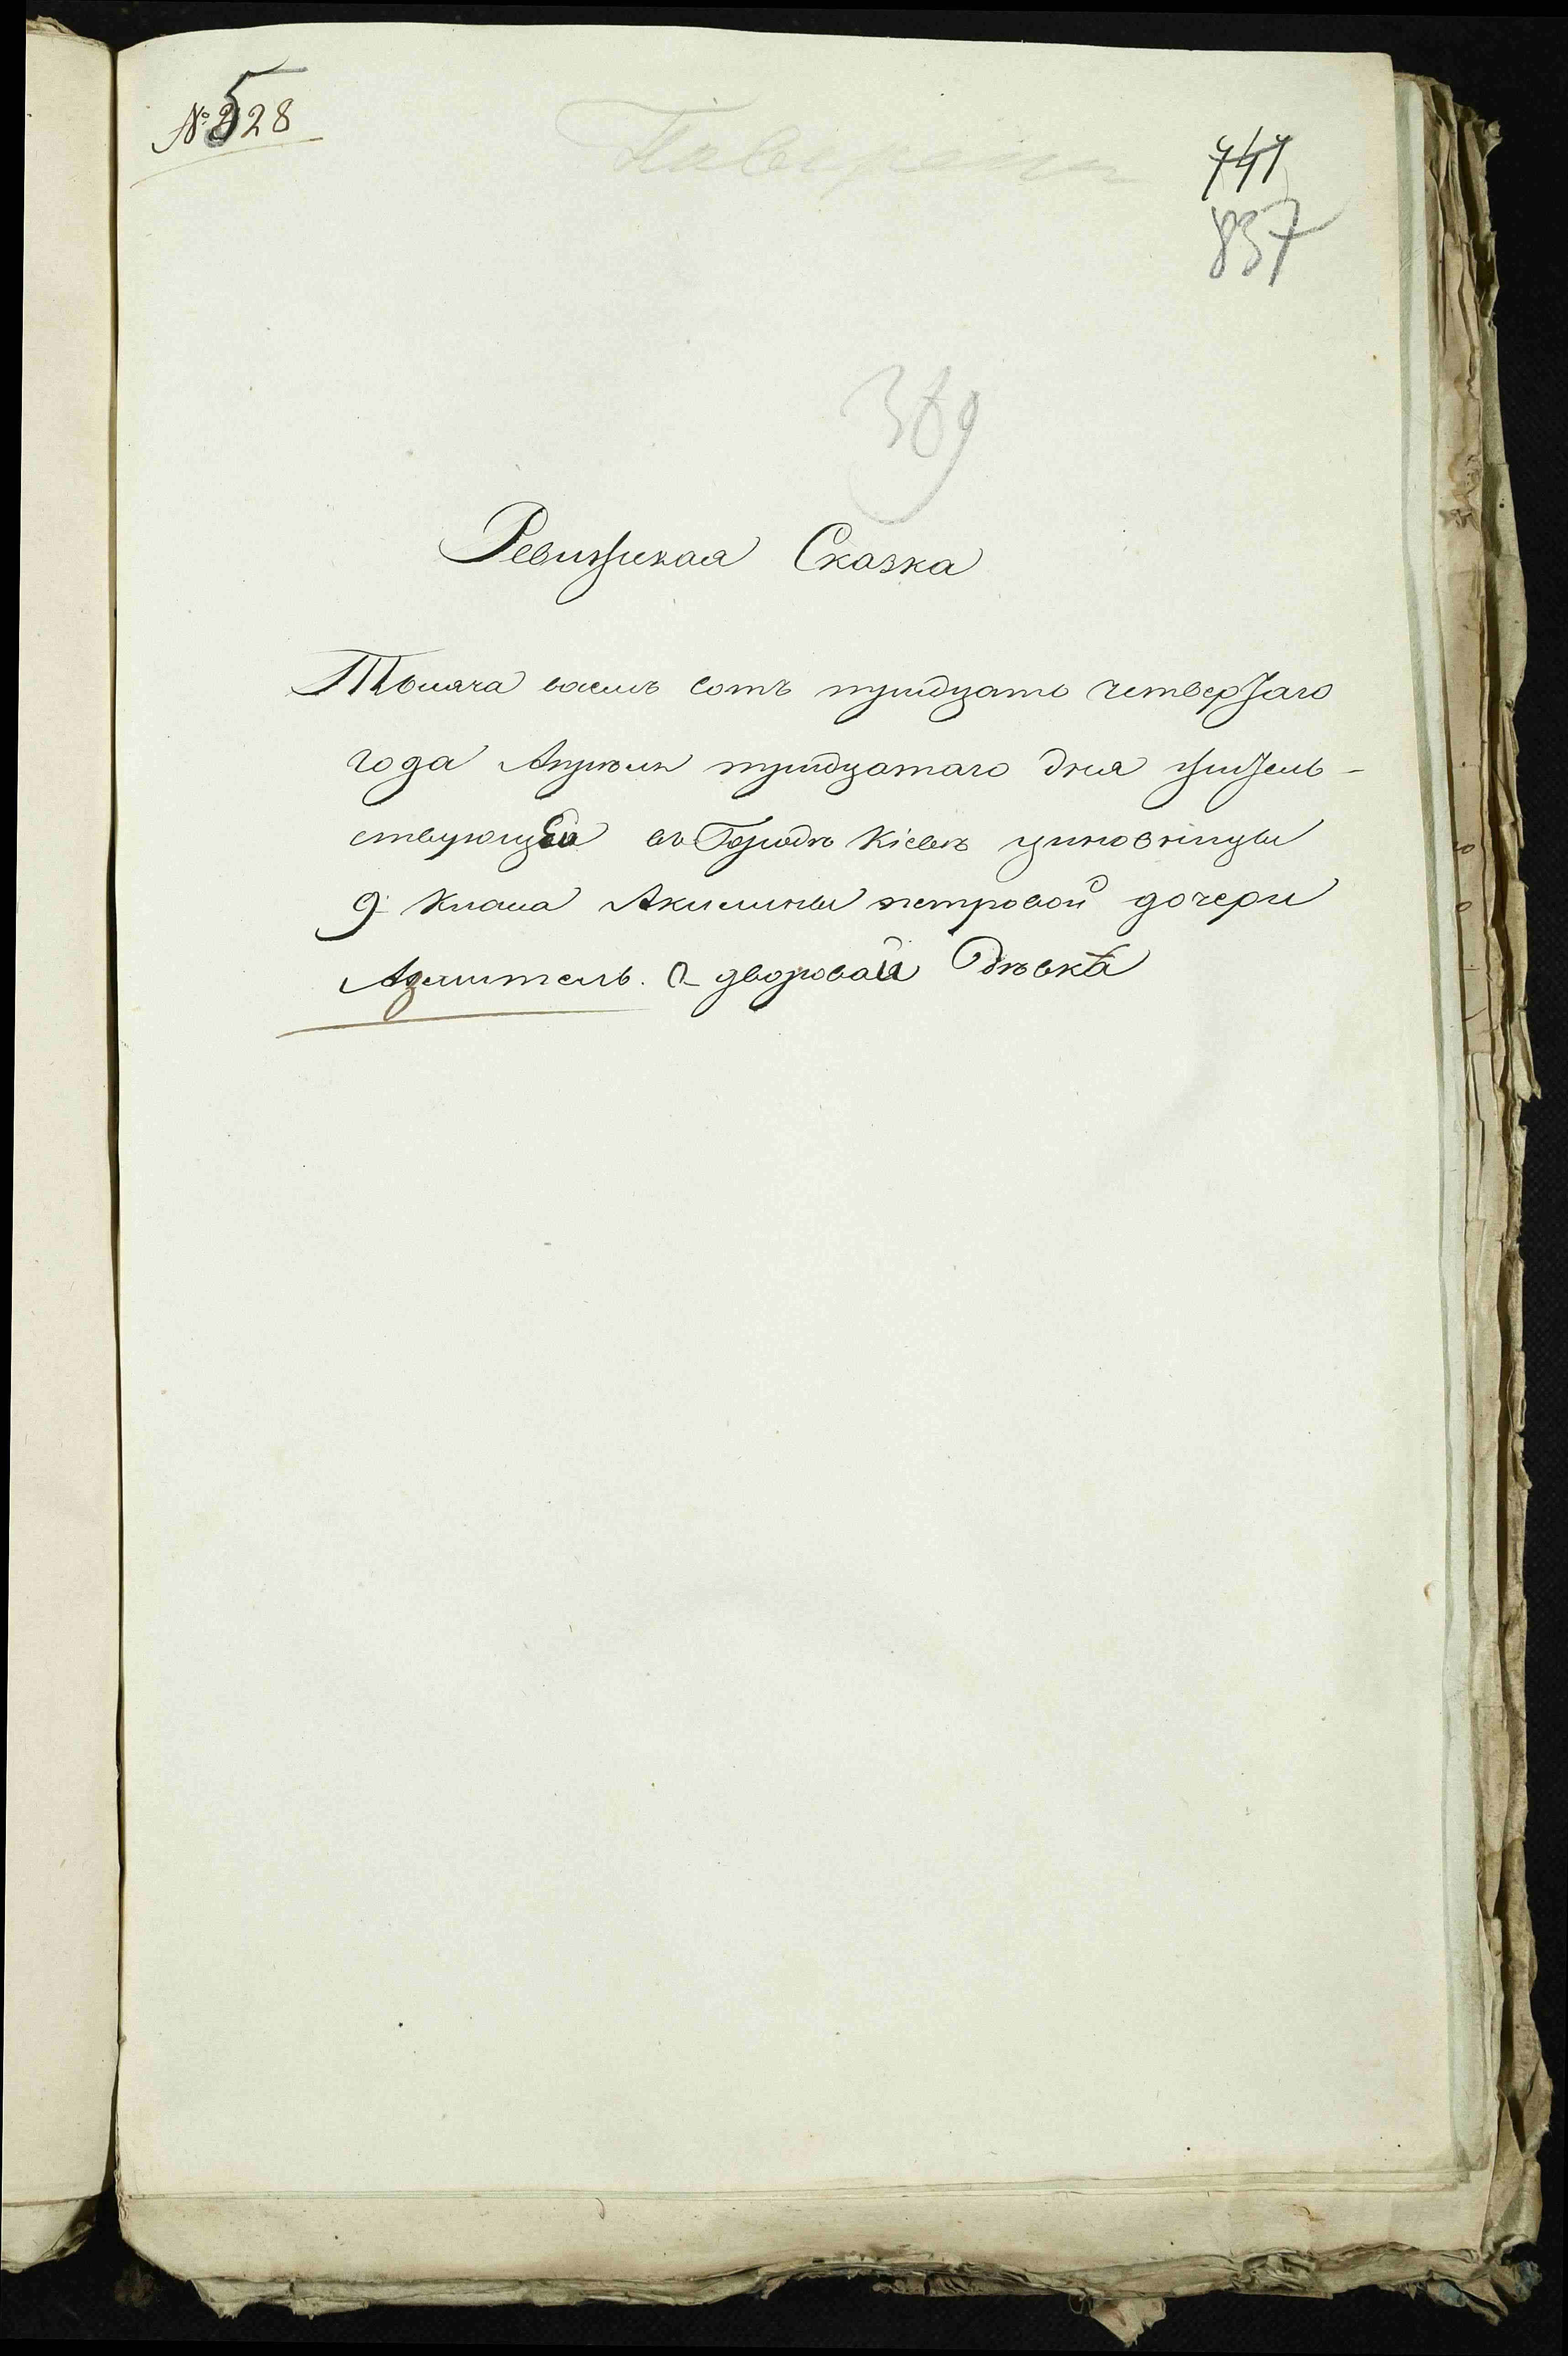 № 528
741
837
389
Ревизская Сказка
Тысяча восемь сотъ тридцать четвертаго
года Апреля тридцатаго дня житель-
ствующей въ Городѣ Кіевѣ чиновницы
9 класа Акилины петровой дочери
о дворовой Дѣвкѣ